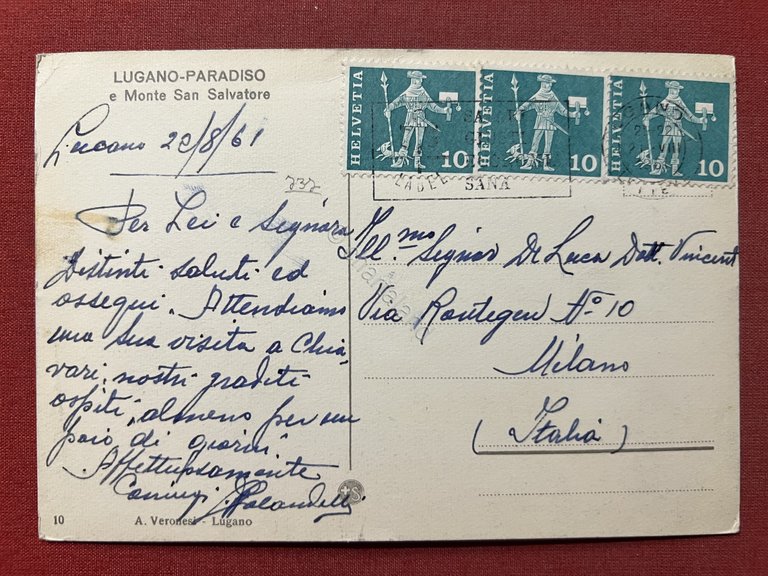 LUGANO-PARADISO
e Monte San Salvatore
Lugano 20/8/61
737
Per Lei e Signora
Distinti saluti ed
ossequi. Attendiamo
una sua visita a Chia-
vari, nostri graditi
ospiti, almeno per un
paio di giorni.
Affettuosamente
Coniugi
10
A. Veronesi - Lugano
HELVETIA 10
HELVETIA 10
HELVETIA 10
SANA
Ill.mo Signor De Luca Dott. Vincent
Via Rontegen N° 10
Milano
(Italia)